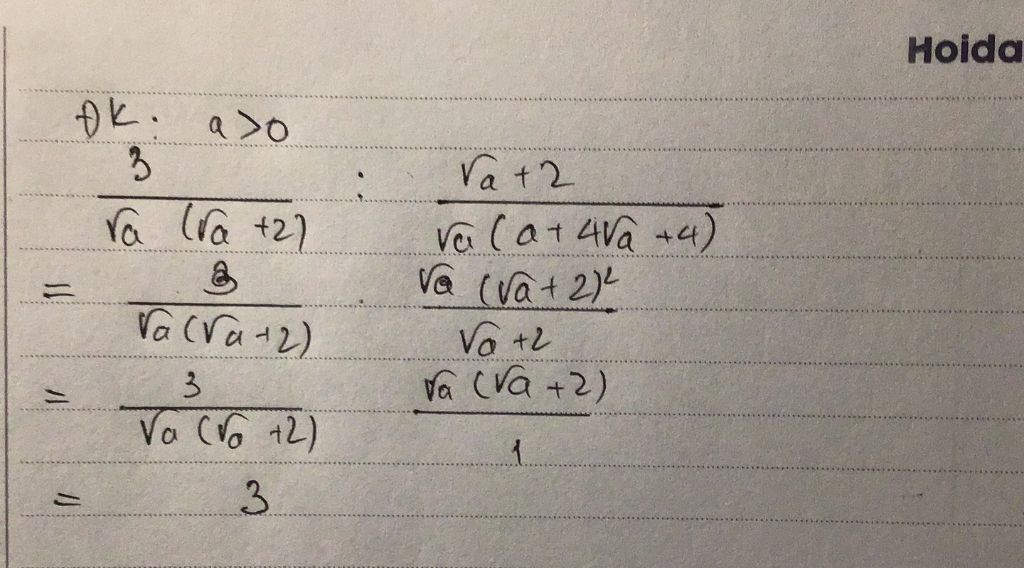 Hoida
ĐK: a>0
3/(√a (√a +2)) : (√a +2)/(√a (a + 4√a +4))
= 3/(√a (√a +2)) . (√a (√a + 2)²)/(√a +2)
= 3/(√a (√a +2)) (√a (√a +2))/1
= 3